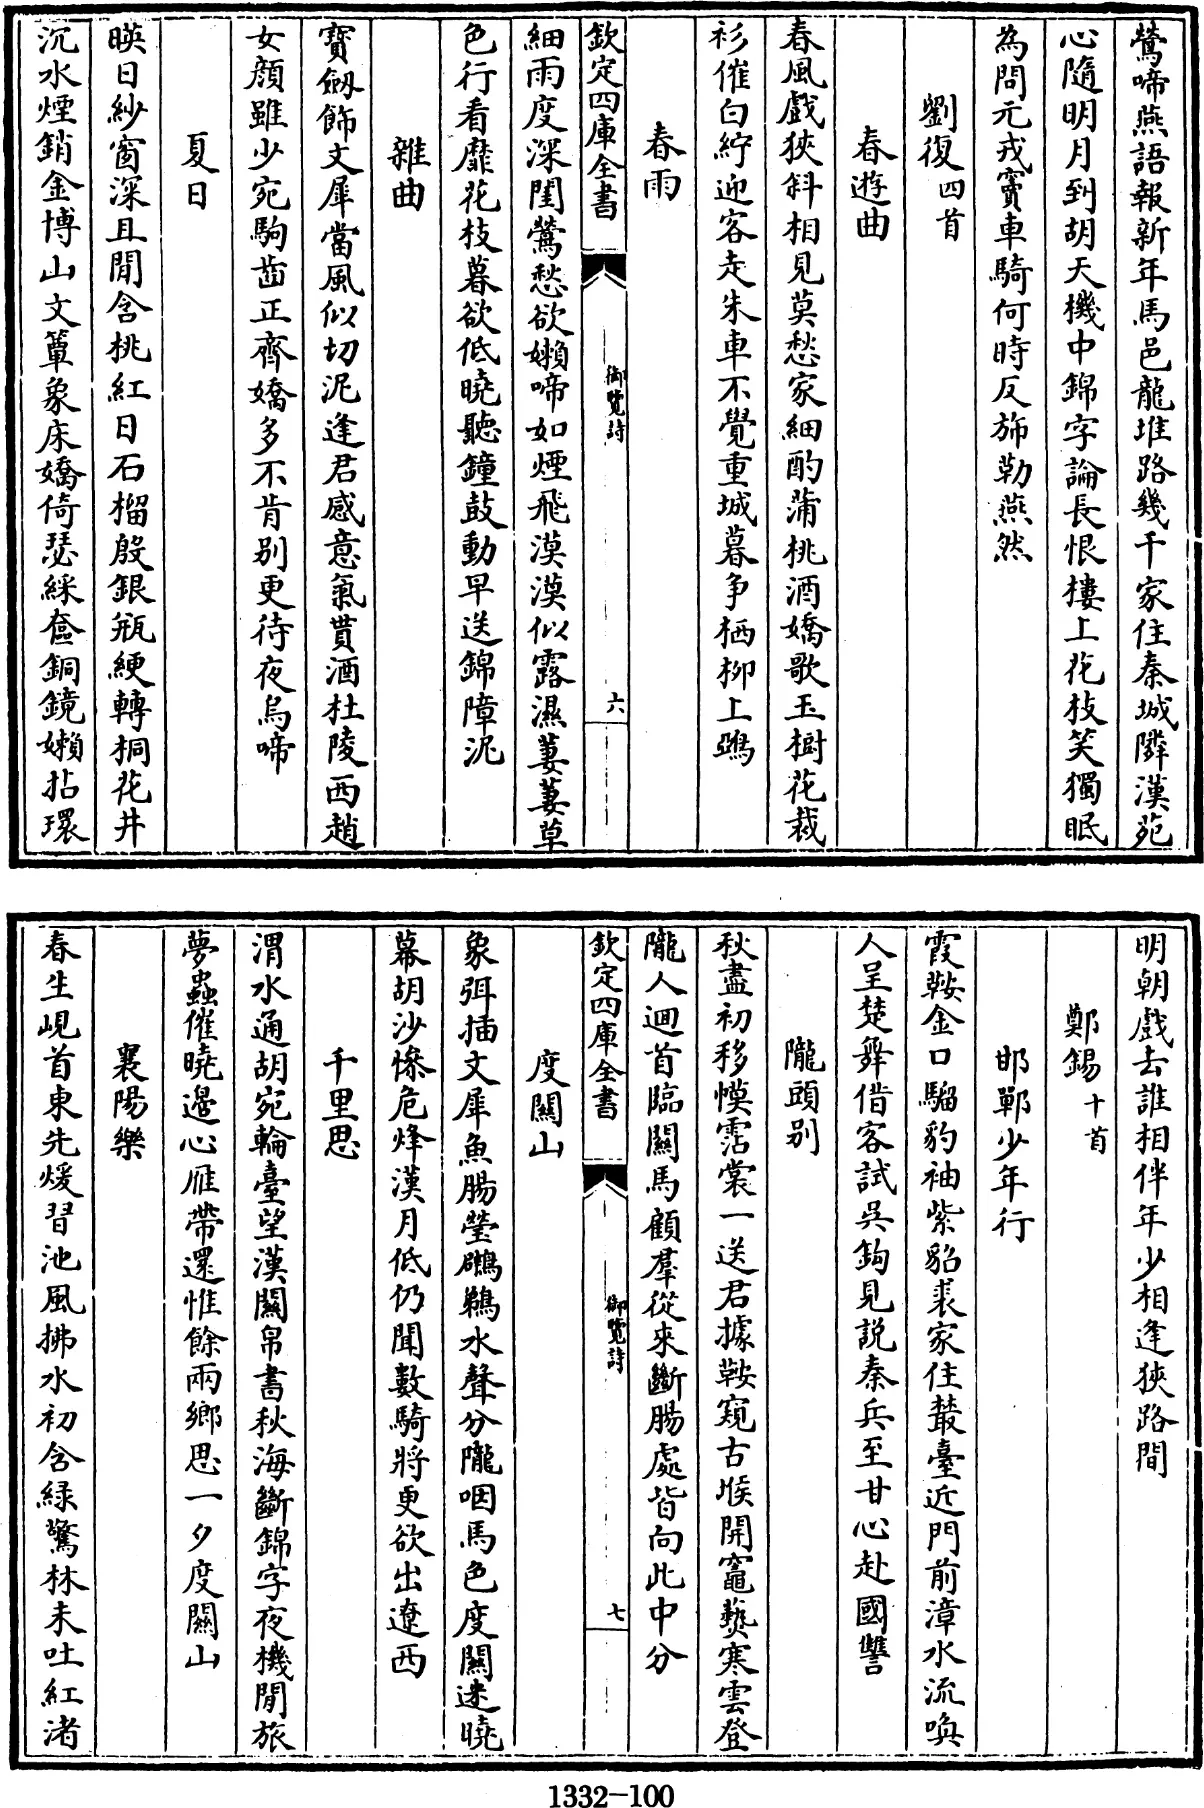 鶯啼燕語報新年馬邑龍堆路幾千家住秦城隣漢苑
心隨明月到胡天機中錦字論長恨樓上花枝笑獨眠
為問元戎竇車騎何時反斾勒燕然
劉復四首
春遊曲
春風戲狹斜相見莫愁家細酌蒲桃酒嬌歌玉樹花裁
衫催白紵迎客走朱車不覺重城暮争栖柳上鴉
春雨
欽定四庫全書
御覽詩
六
細雨度深閨鶯愁欲嬾啼如煙飛漠漠似露濕萋萋草
色行看靡花枝暮欲低曉聽鐘鼓動早送錦障泥
雜曲
寶劔飾文犀當風似切泥逢君感意氣貰酒杜陵西趙
女顏雖少宛駒齒正齊嬌多不肯别更待夜烏啼
夏日
暎日紗窗深且閒含桃紅日石榴殷銀瓶綆轉桐花井
沉水煙銷金博山文簟象床嬌倚瑟綵奩銅鏡嬾拈環
明朝戲去誰相伴年少相逢狹路間
鄭錫十首
邯鄲少年行
霞鞍金口騮豹袖紫貂裘家住叢臺近門前漳水流喚
人呈楚舞借客試吳鉤見説秦兵至甘心赴國讐
隴頭别
秋盡初移幙霑裳一送君據鞍窺古堠開竈爇寒雲登
隴人迴首臨關馬顧羣從來斷腸處皆向此中分
欽定四庫全書
御覽詩
七
度關山
象弭插文犀魚腸瑩鸊鵜水聲分隴咽馬色度關迷曉
幕胡沙慘危烽漢月低仍聞數騎將更欲出遼西
千里思
渭水通胡宛輪臺望漢關帛書秋海斷錦字夜機閒旅
夢蟲催曉邊心雁帶還惟餘兩鄉思一夕度關山
襄陽樂
春生峴首東先煖習池風拂水初含緑驚林未吐紅渚
1332-100